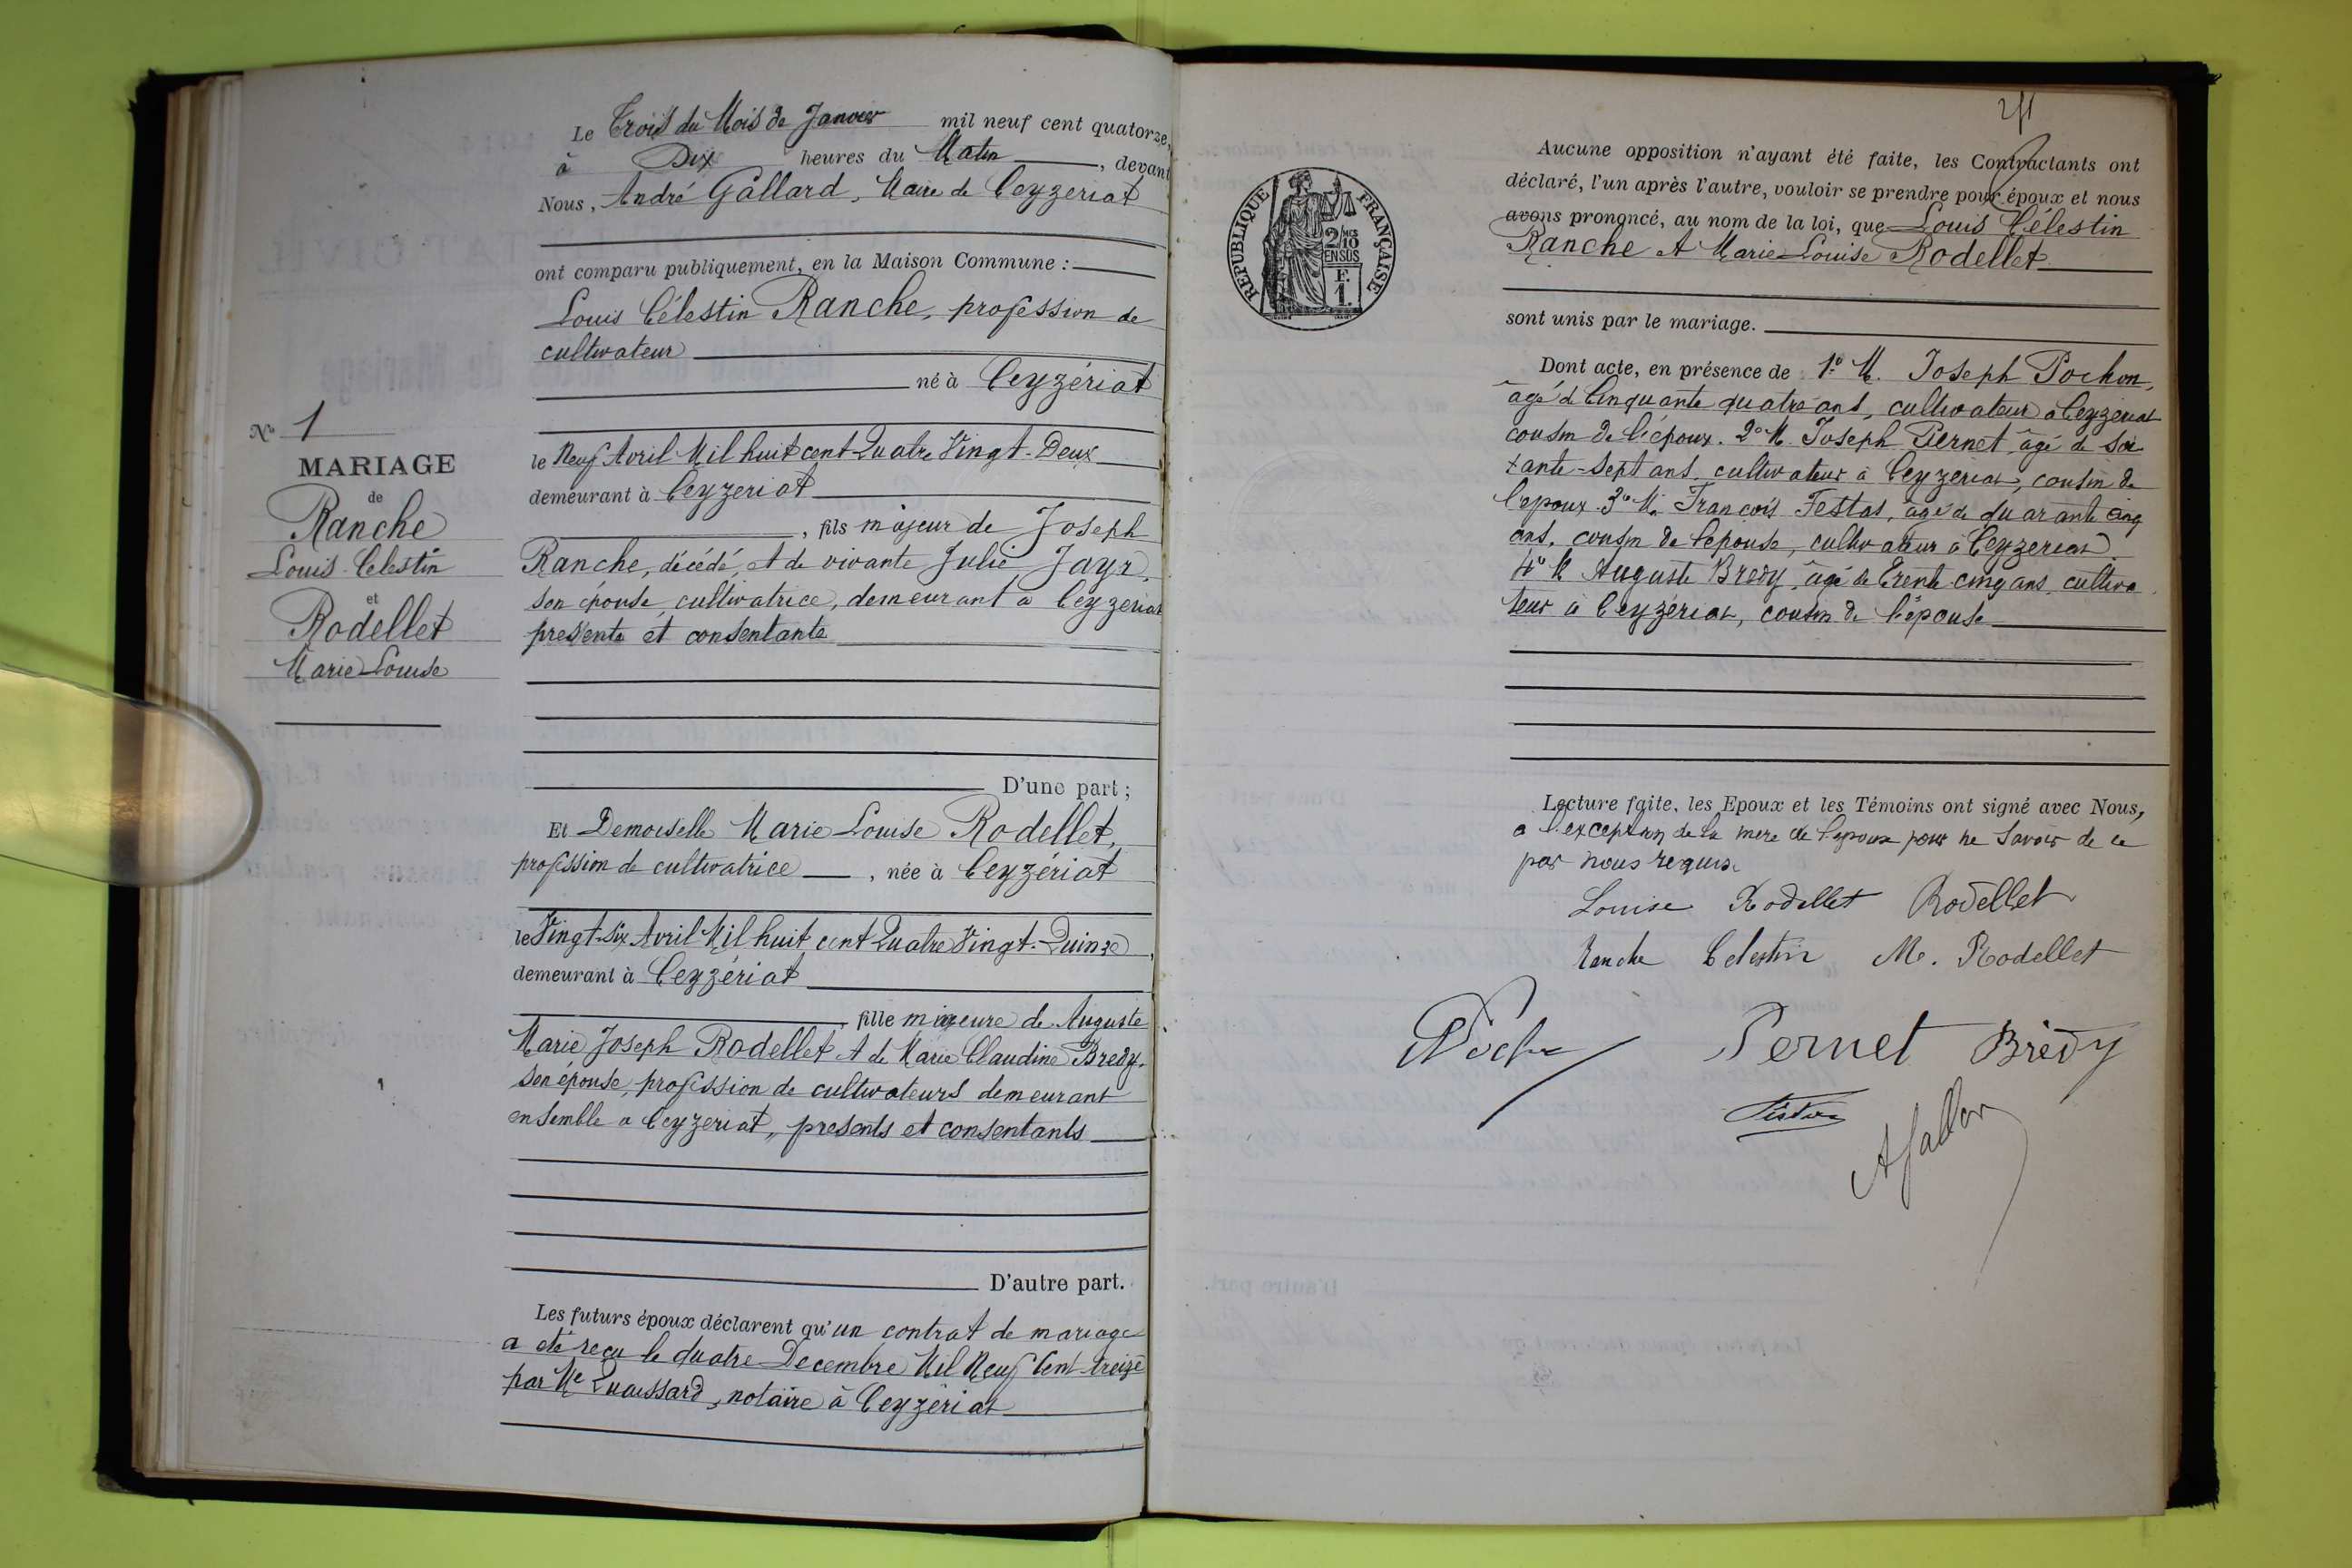 N° 1
MARIAGE
de
Ranche
Louis Célestin
et
Rodellet
Marie Louise
Le Trois du Mois de Janvier mil neuf cent quatorze,
à Dix heures du Matin, devant
Nous, André Gallard, Maire de Ceyzeriat
ont comparu publiquement, en la Maison Commune :
Louis Célestin Ranche, profession de
cultivateur
né à Ceyzériat
le Neuf Avril Mil huit cent Quatre Vingt-Deux
demeurant à Ceyzeriat
, fils majeur de Joseph
Ranche, décédé, et de vivante Julie Jayr,
son épouse, cultivatrice, demeurant à Ceyzeriat
presente et consentante
D'une part ;
Et Demoiselle Marie Louise Rodellet,
profession de cultivatrice, née à Ceyzériat
le Vingt-Six Avril Mil huit cent Quatre Vingt-Quinze,
demeurant à Ceyzériat
, fille mineure de Auguste
Marie Joseph Rodellet et de Marie Claudine Bredy,
son épouse, profession de cultivateurs demeurant
ensemble a Ceyzeriat, presents et consentants
D'autre part.
Les futurs époux déclarent qu'un contrat de mariage
a été reçu le quatre Decembre Mil Neuf Cent treize
par Me, notaire à Ceyzériat
RÉPUBLIQUE FRANÇAISE
2/10 MES
EN SUS
F.
1.
Aucune opposition n'ayant été faite, les Contractants ont
déclaré, l'un après l'autre, vouloir se prendre pour époux et nous
avons prononcé, au nom de la loi, que Louis Célestin
Ranche et Marie Louise Rodellet
sont unis par le mariage.
Dont acte, en présence de 1° M. Joseph Pochon,
âgé de Cinquante quatre ans, cultivateur à Ceyzeriat
cousin de l'époux. 2° M. Joseph Piernet, âgé de Soi
xante-sept ans, cultivateur à Ceyzeriat, cousin de
l'epoux. 3° M. François Festas, âgé de quarante cinq
ans, cousin de l'epouse, cultivateur à Ceyzeriat.
4° M Auguste Bredy, âgé de Trente-cinq ans, cultiva
teur à Ceyzériat, cousin de l'épouse
Lecture faite, les Epoux et les Témoins ont signé avec Nous,
a l'exception de la mere de l'epoux pour ne Savoir de ce
par nous requise
Louise Rodellet Rodellet
Ranche Celestin M. Rodellet
Pernet Brédy